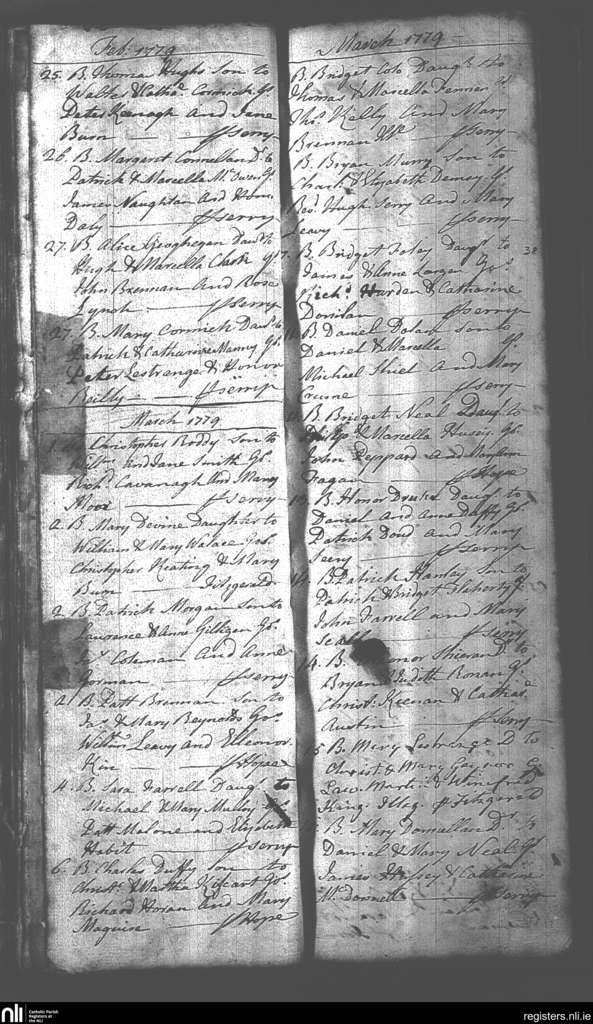 Feb. 1779
25. B. Thomas Hughs Son to
Walter & Cathe. Cormick Gs.
Peter Keenagh And Jane
Burn — ffSerry
26. B. Margeret Connellan Dr. to
Patrick & Marcella McOwen Gs.
James Naughtan And Honr.
Daly — ffSerry
27. B. Alice Geoghegan Daur. to
Hugh & Marcella Clark Gs.
John Brennan And Rose
Lynch — ffSerry
27. B. Mary Cormick Daur. to
Patrick & Catharine Manny Gs.
Peter Lestrange & Honor
Reilly — ffSerry
March 1779
Christopher Roddy Son to
And Jane Smith Gs.
Cavanagh And Mary
Moor — ffSerry
2. B. Mary Devine Daughter to
William & Mary Walace Gs.
Christopher Keating & Mary
Burn — Fitzgerald
2. B. Patrick Morgan Son to
Lawrence & Anne Gilligan Gs.
Coleman And Anne
Gorman — ffSerry
2. B. Patt Brennan Son to
Jno. & Mary Reynolds Gs.
Willm. Leavy And Elleonor
— ffHope
4. B. Sara Farrell Daugr. to
Michael & Mary Gs.
Patt Malone and Elizabeth
— ffSerry
6. B. Charles Duffy Son to
Chrisr. & Martha Gs.
Richard Horan And Mary
Maguire — ffHope
March 1779
B. Bridget Daugr. to
Thomas & Marcella Gs.
Thos. Kelly And Mary
Brennan — ffSerry
B. Bryan Murry Son to
Charls & Elizabeth Gs.
Revd. Hugh Serry And Mary
Leavy — ffSerry
7. B. Bridget Foley Daugr. to 38
James & Anne Gs.
Richd. Harden & Catharine
Donilan — ffSerry
B. Daniel Dolan Son to
Daniel & Marcella Gs.
Michael And Mary
— ffSerry
B. Bridget Neal Daugr. to
Philip & Marcella Hussey Gs.
John Peppard And
Fagan — ffHope
B. Honor Daugr. to
Daniel And Anne Duffy Gs.
Patrick Dowd And Mary
Serry — ffSerry
B. Patrick Hanley Son to
Patrick & Bridget Flaherty Gs.
John Farrell and Mary
Scally — ffSerry
14. B. Dr. to
Bryan & Judith Ronan Gs.
Christr. Keenan & Catha.
Austin — ffSerry
B. Mary Lestrange Dr. to
Christr. & Mary Gs.
Law. Martin & Winefred
King. Illeg. ff Fitzgerald
B. Mary Donnellan Dr. to
Daniel & Mary Neal Gs.
James Hussey & Catherine
McDonnell — ffSerry
nli
Catholic Parish
Registers at
the NLI
registers.nli.ie